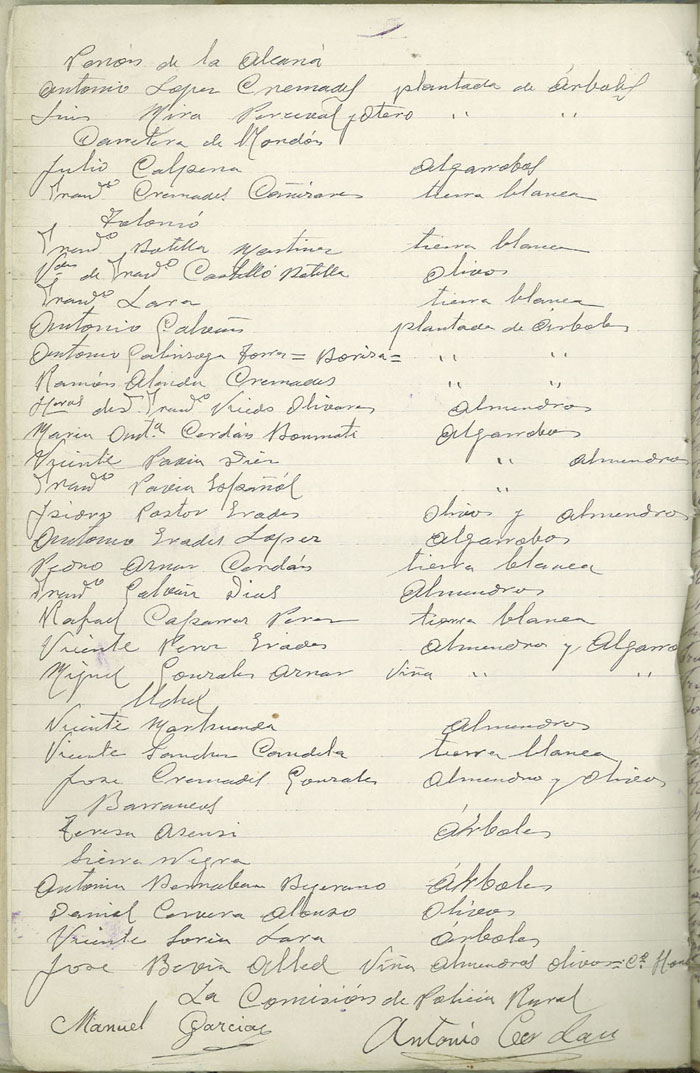 de la Alcaná
Antonio Lopez Cremades plantada de Árboles
Luis Mira Perceval y Otero " "
Carretera de
Julio Calpena Algarrobos
Franco Cremades Cañizares tierra blanca

Franco Botella Martinez tierra blanca
Vda de Franco Castelló Botella Olivos
Franco Lara tierra blanca
Antonio Galvañ plantada de Árboles
Antonio Galinsoga Torres = = " "
Ramón Alenda Cremades " "
Hros de D. Franco Olivares Almendros
Maria Anta Cerdán Boumati Algarrobos
Vicente Pavia Diez " almendros
Franco Pavia Español "
Isidro Pastor Erades Olivos y almendros
Antonio Erades Lopez Algarrobos
Pedro Aznar Cerdán tierra blanca
Franco Galvañ Dias Almendros
Rafael Caparros Perez tierra blanca
Vicente Perez Erades almendros y Algarro
Miguel Gonzales Aznar Viña " "
Uchel
Vicente Marhuenda Almendros
Vicente Sanchez Candela tierra blanca
Jose Cremades Gonzales almendro y olivos
Barrancos
Teresa Asensi Árboles
Sierra Negra
Antonia Bernabeu Bejerano Árboles
Daniel Cervera Alonso Olivos
Vicente Soria Lara árboles
Jose Bevia Alted Viña almendros olivos =
La Comisión de Policia Rural
Manuel Garcia Antonio Cerdan